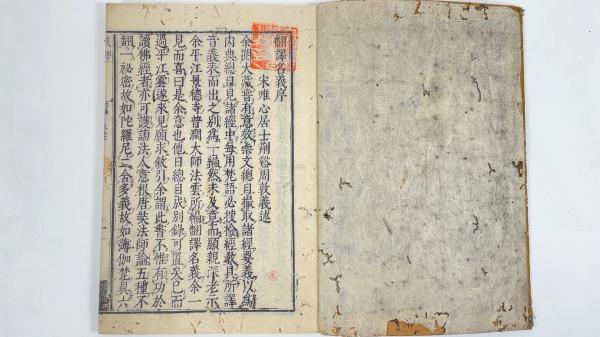 翻譯名義序
宋唯心居士荊谿周敦義述
余閱大藏嘗有意效崇文總目撮取諸經要義以為
內典總目見諸經中每用梵語必搜檢經教具所譯
音義表而出之別為一編然未及竟而顯親深老示
余平江景德寺普潤大師法雲所編翻譯名義余一
見而喜曰是余意也他日總目成別錄可置矣已而
過平江雲遂來見願求敘引余謂此書不惟有功於
讀佛經者亦可護謗法人意根唐奘法師論五種不
翻一祕密故如陀羅尼二含多義故如薄伽梵具六